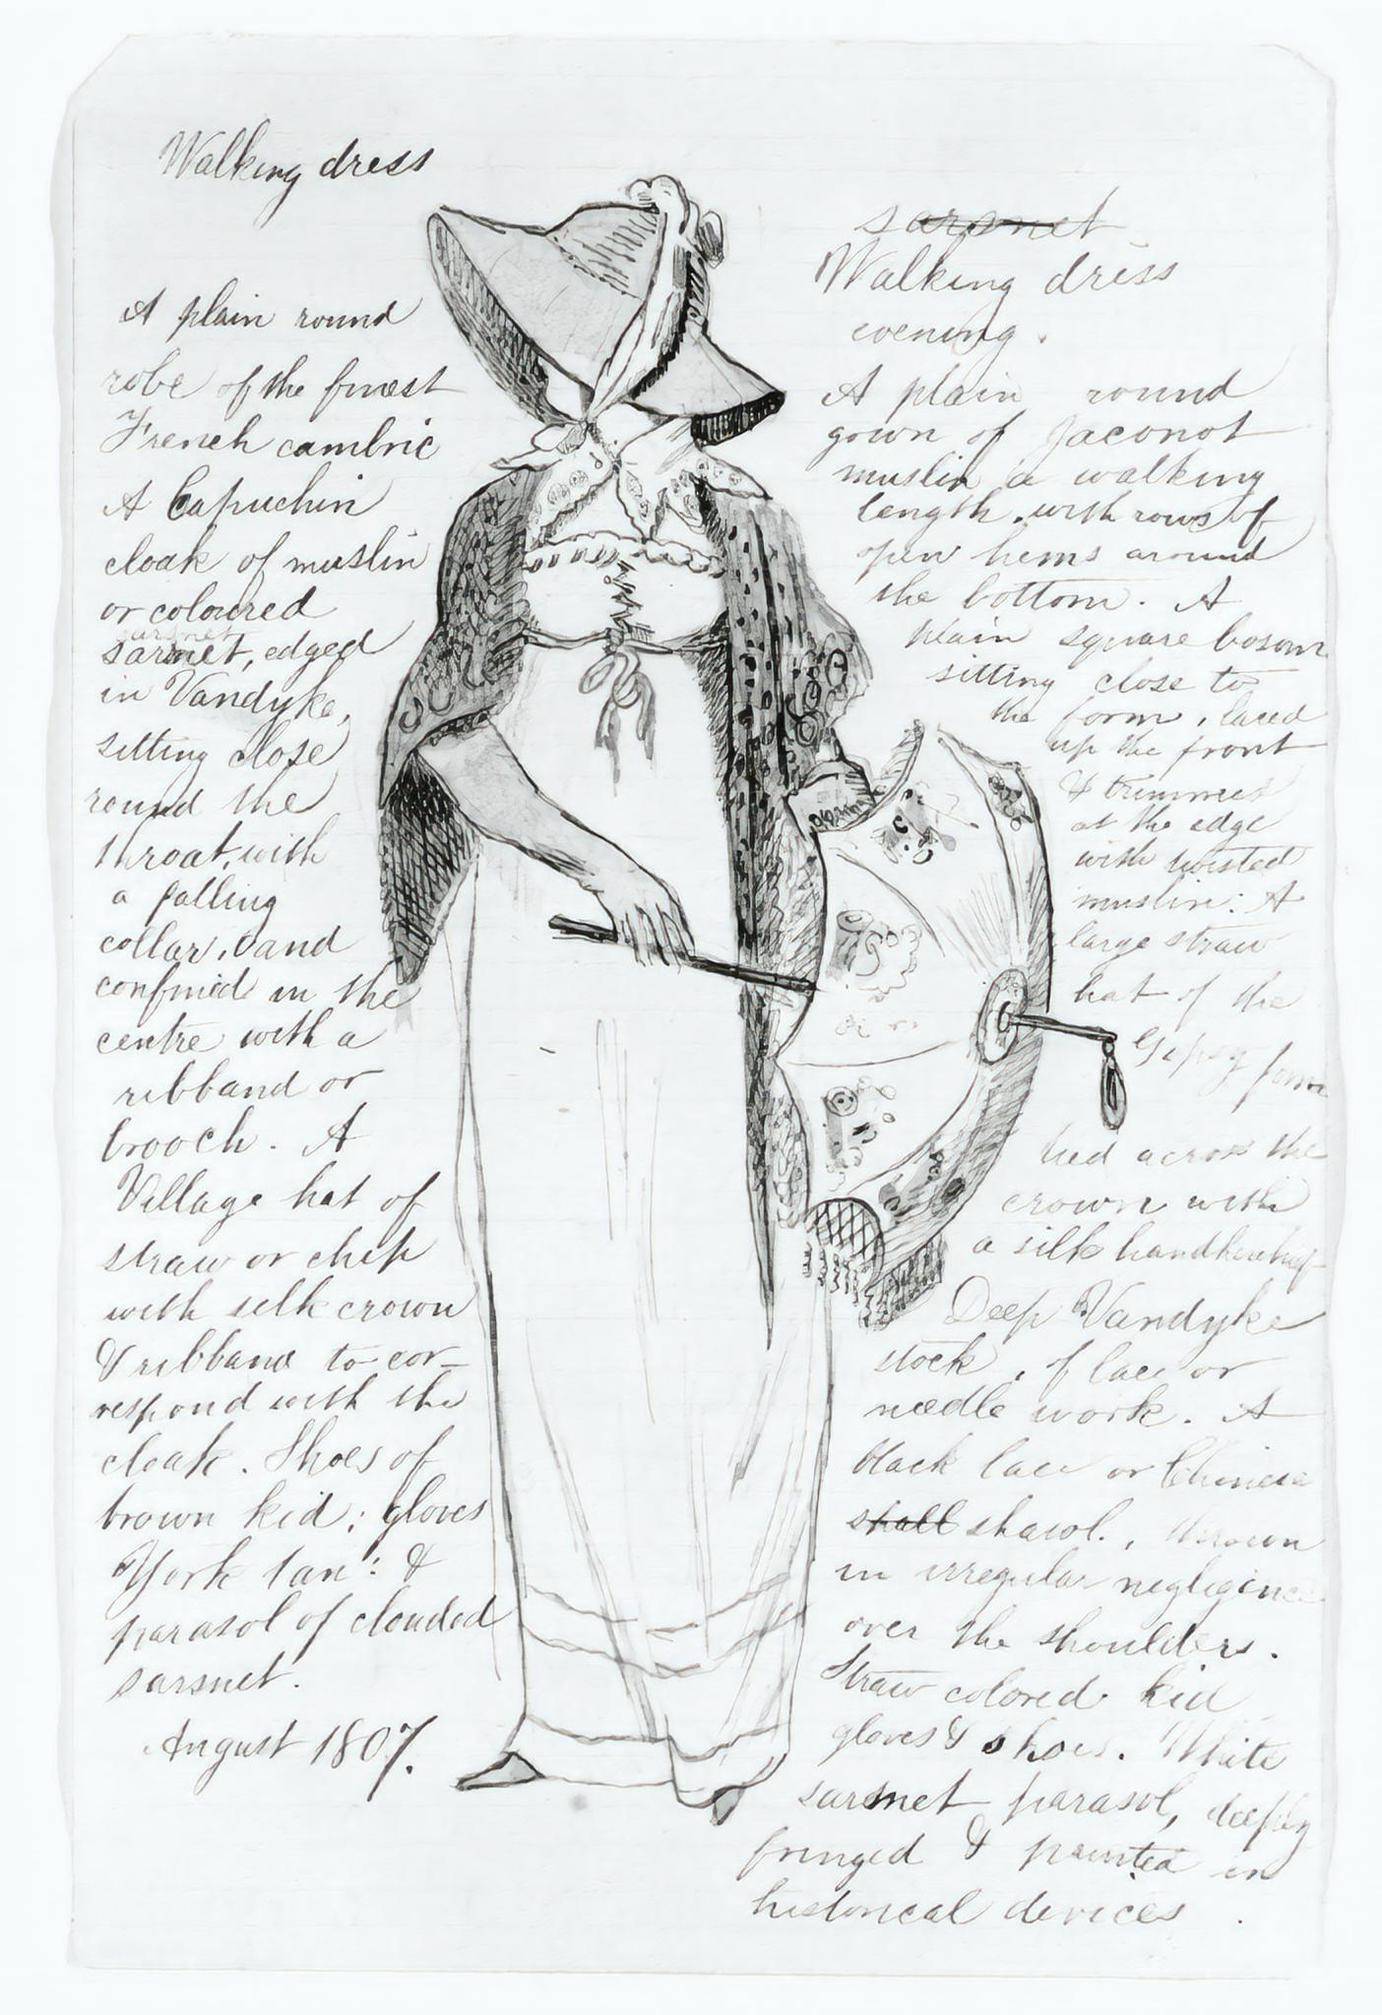 Walking dress
A plain round
robe of the finest
French cambric
A Capuchin
cloak of muslin
or coloured
sarsnet
sarsnet, edged
in Vandyke,
sitting close
round the
throat, with
a falling
collar, and
confined in the
centre with a
ribband or
brooch. A
Village hat of
straw or chip
with silk crown
& ribband to cor-
respond with the
cloak. Shoes of
brown kid; gloves
York tan: &
parasol of clouded
sarsnet.
August 1807.
sarsnet
Walking dress
evening.
A plain round
gown of Jaconot
muslin a walking
length. with rows of
open hems around
the bottom. A
plain square bosom
sitting close to
the form, laced
up the front
& trimmed
at the edge
with twisted
muslin: A
large straw
hat of the
Gipsey form
tied across the
crown with
a silk handkerchief
Deep Vandyke
stock, of lace or
needle work. A
black lace or Chinese
shall shawl., thrown
in irregular negligence
over the shoulders.
Straw colored kid
gloves & shoes. White
sarsnet parasol, deeply
fringed & painted in
historical devices.